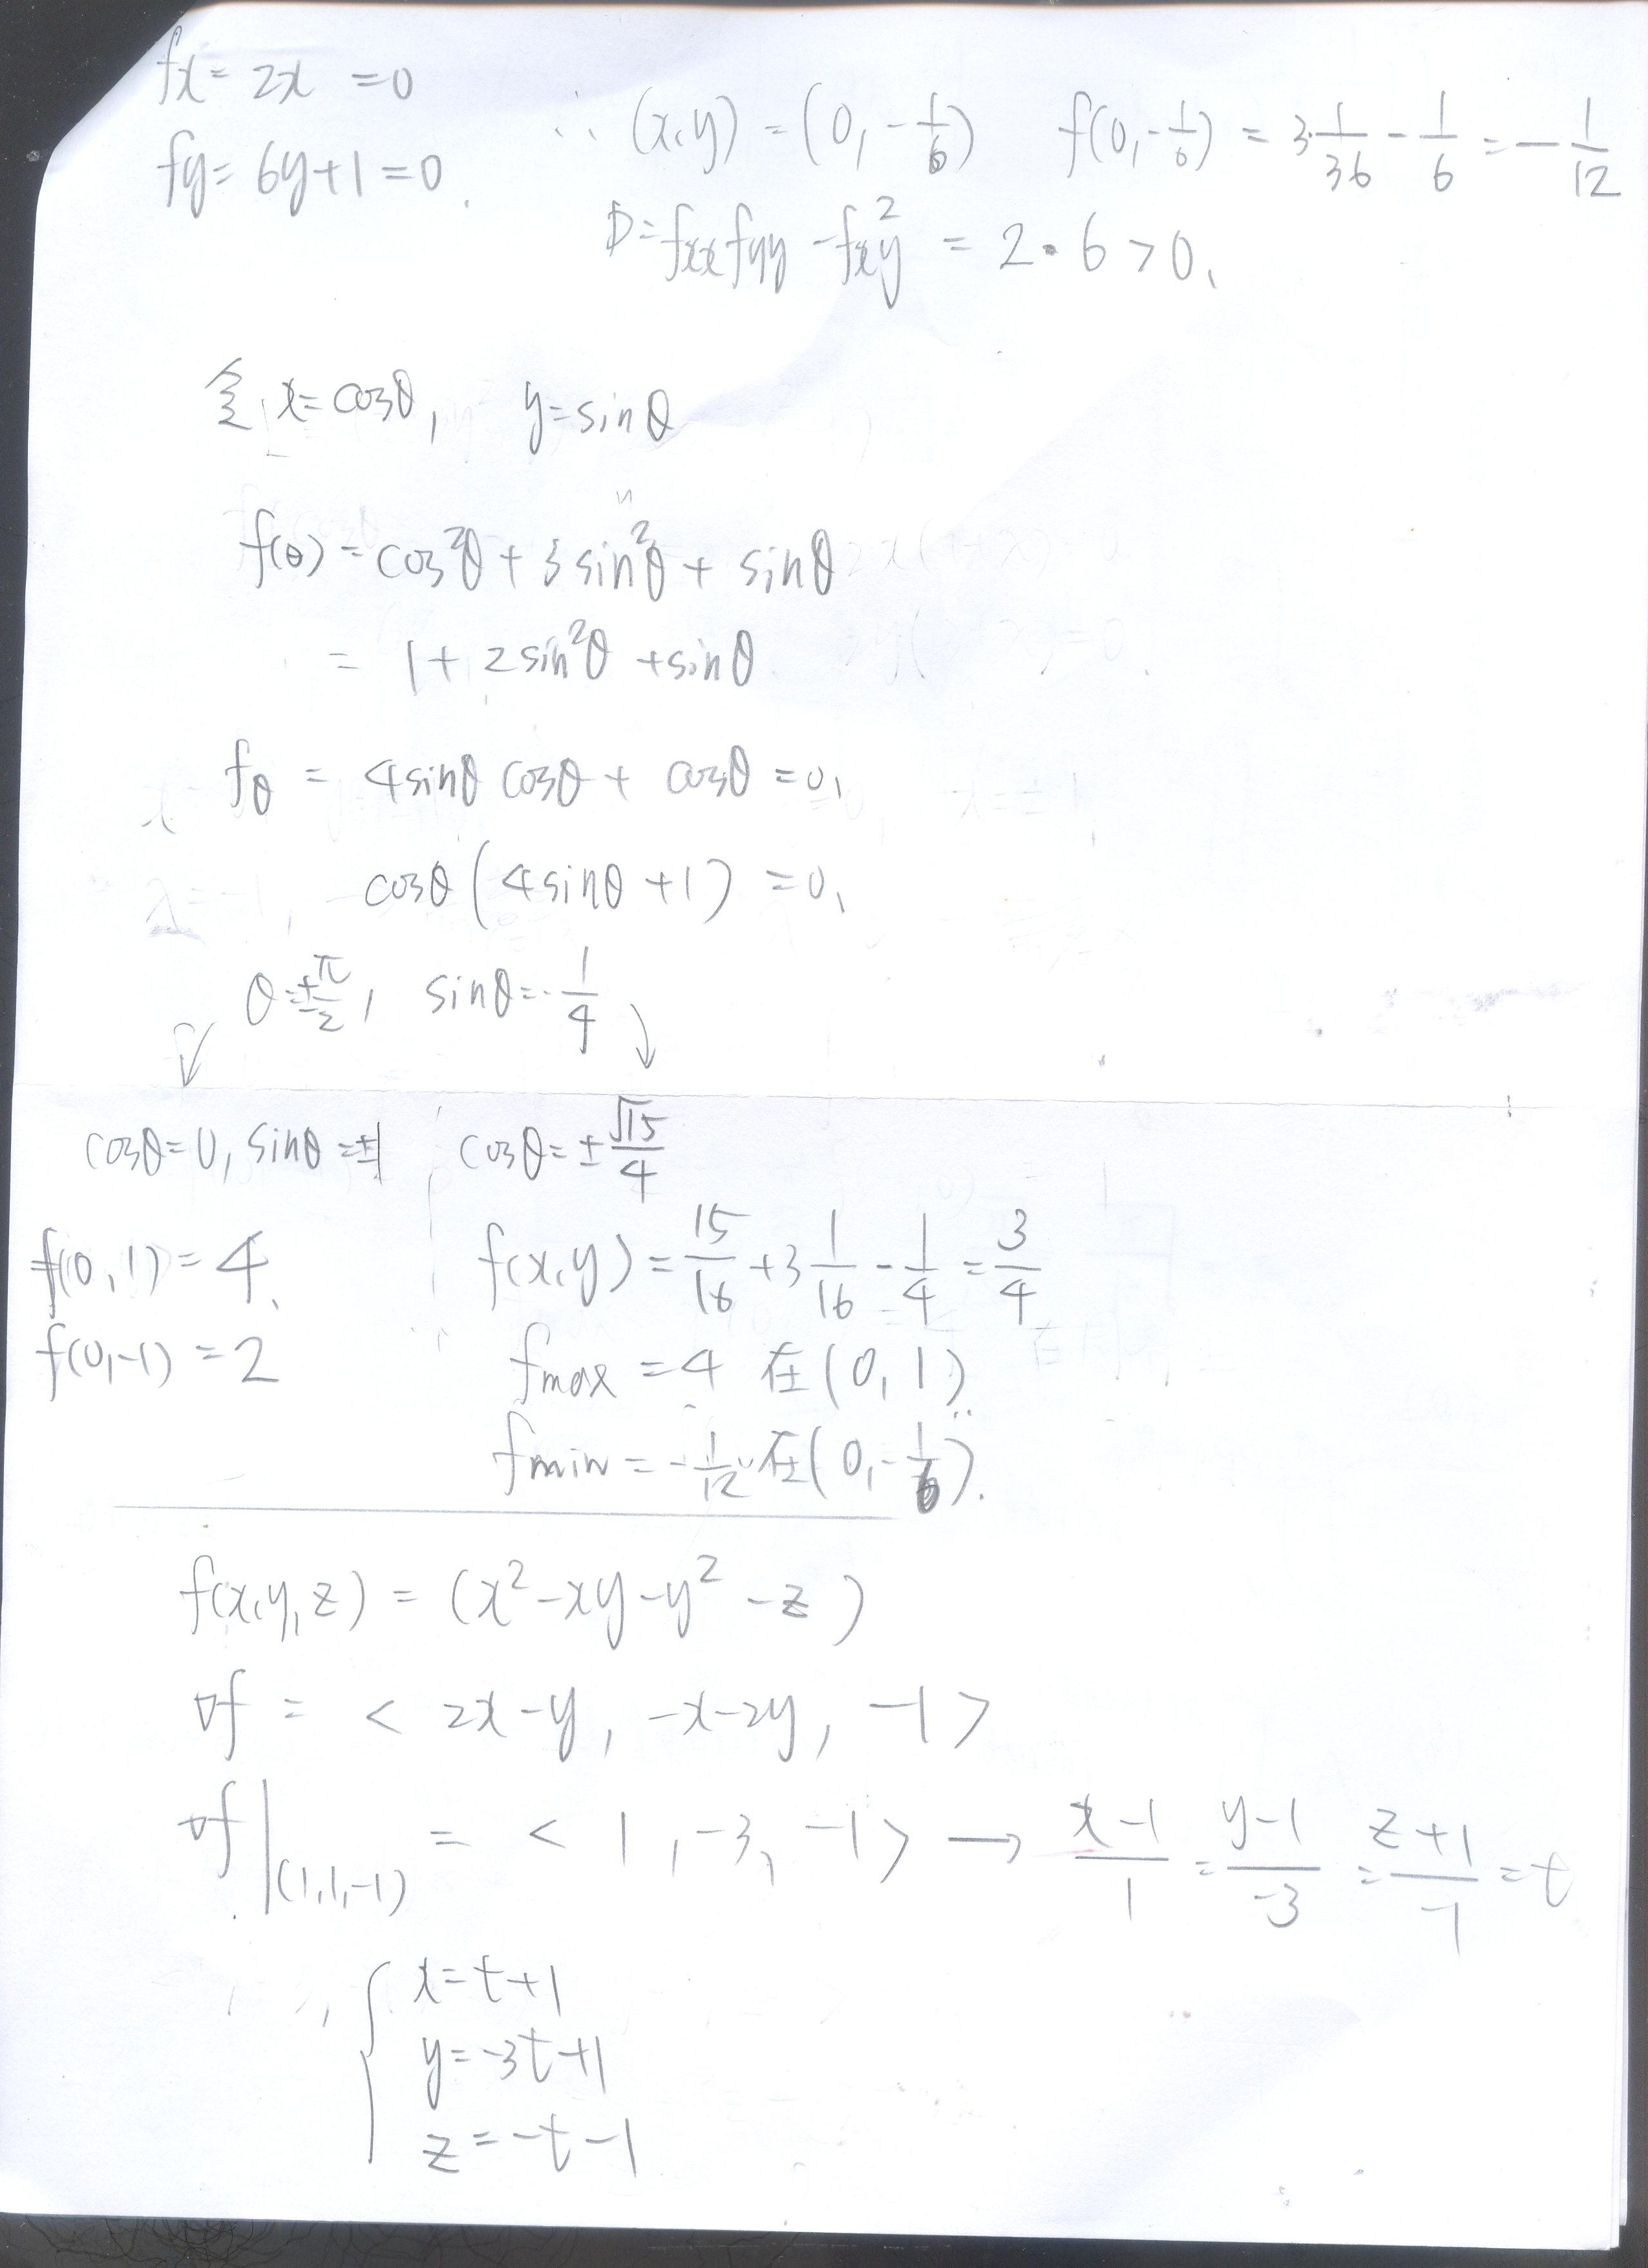 fx = 2x = 0
fy = 6y+1 = 0.
∴ (x,y) = (0, -1/6)   f(0,-1/6) = 3·1/36 - 1/6 = -1/12
D = fxx fyy - fxy² = 2·6 > 0.
令 x = cosθ, y = sinθ
f(θ) = cos²θ + 3sin²θ + sinθ
= 1 + 2sin²θ + sinθ
fθ = 4sinθ cosθ + cosθ = 0,
cosθ (4sinθ + 1) = 0,
θ = ±π/2, sinθ = -1/4
cosθ = 0, sinθ = ±1   cosθ = ±√15/4
f(0,1) = 4.   f(x,y) = 15/16 + 3 1/16 - 1/4 = 3/4
f(0,-1) = 2   fmax = 4 在 (0,1)
fmin = -1/12 在 (0,-1/6).
f(x,y,z) = (x²-xy-y²-z)
∇f = < 2x-y, -x-2y, -1 >
∇f|(1,1,-1) = < 1, -3, -1 > → x-1/1 = y-1/-3 = z+1/-1 = t
{ x = t+1
y = -3t+1
z = -t-1